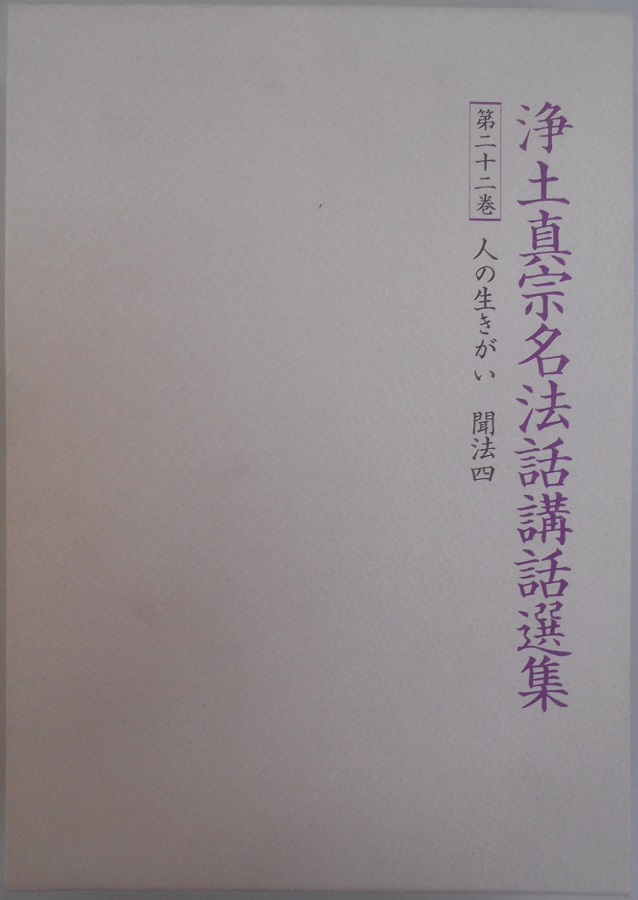 浄土真宗名法話講話選集
第二十二巻 人の生きがい 聞法四